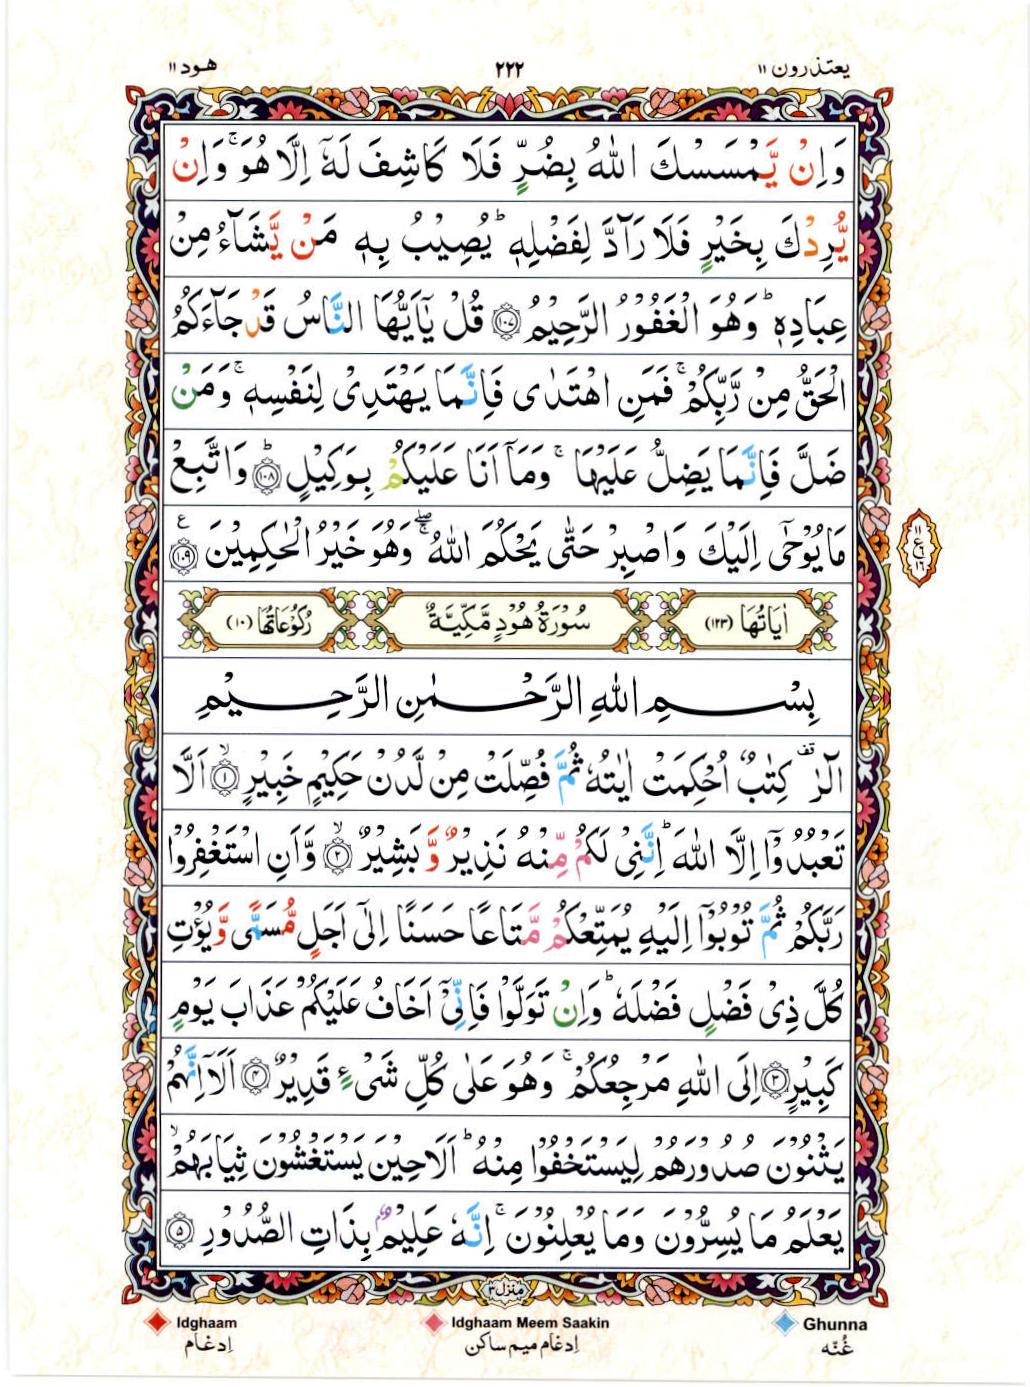 يعتذرون ١١
٢٢٢
هود ١١
وَاِنْ يَّمْسَسْكَ اللّٰهُ بِضُرٍّ فَلَا كَاشِفَ لَهٗٓ اِلَّا هُوَ ۚ وَاِنْ
يُّرِدْكَ بِخَيْرٍ فَلَا رَآدَّ لِفَضْلِهٖ ؕ يُصِيْبُ بِهٖ مَنْ يَّشَآءُ مِنْ
عِبَادِهٖ ؕ وَهُوَ الْغَفُوْرُ الرَّحِيْمُ ﴿١٠٧﴾ قُلْ يٰۤاَيُّهَا النَّاسُ قَدْ جَآءَكُمُ
الْحَقُّ مِنْ رَّبِّكُمْ ۚ فَمَنِ اهْتَدٰى فَاِنَّمَا يَهْتَدِىْ لِنَفْسِهٖ ۚ وَمَنْ
ضَلَّ فَاِنَّمَا يَضِلُّ عَلَيْهَا ۚ وَمَآ اَنَا عَلَيْكُمْ بِوَكِيْلٍ ﴿١٠٨﴾ؕ وَاتَّبِعْ
مَا يُوْحٰٓى اِلَيْكَ وَاصْبِرْ حَتّٰى يَحْكُمَ اللّٰهُ ۖۚ وَهُوَ خَيْرُ الْحٰكِمِيْنَ ﴿١٠٩﴾ ع
١١
ع
١٦
اٰيَاتُهَا (١٢٣) سُوْرَةُ هُوْدٍ مَّكِّيَّةٌ رُكُوْعَاتُهَا (١٠)
بِسْمِ اللّٰهِ الرَّحْمٰنِ الرَّحِيْمِ
الٓرٰ ۟ كِتٰبٌ اُحْكِمَتْ اٰيٰتُهٗ ثُمَّ فُصِّلَتْ مِنْ لَّدُنْ حَكِيْمٍ خَبِيْرٍ ﴿١﴾ۙ اَلَّا
تَعْبُدُوْٓا اِلَّا اللّٰهَ ؕ اِنَّنِىْ لَكُمْ مِّنْهُ نَذِيْرٌ وَّ بَشِيْرٌ ﴿٢﴾ۙ وَّاَنِ اسْتَغْفِرُوْا
رَبَّكُمْ ثُمَّ تُوْبُوْٓا اِلَيْهِ يُمَتِّعْكُمْ مَّتَاعًا حَسَنًا اِلٰٓى اَجَلٍ مُّسَمًّى وَّيُؤْتِ
كُلَّ ذِىْ فَضْلٍ فَضْلَهٗ ؕ وَاِنْ تَوَلَّوْا فَاِنِّىْٓ اَخَافُ عَلَيْكُمْ عَذَابَ يَوْمٍ
كَبِيْرٍ ﴿٣﴾ اِلَى اللّٰهِ مَرْجِعُكُمْ ۚ وَهُوَ عَلٰى كُلِّ شَىْءٍ قَدِيْرٌ ﴿٤﴾ اَلَآ اِنَّهُمْ
يَثْنُوْنَ صُدُوْرَهُمْ لِيَسْتَخْفُوْا مِنْهُ ؕ اَلَا حِيْنَ يَسْتَغْشُوْنَ ثِيَابَهُمْ ۙ
يَعْلَمُ مَا يُسِرُّوْنَ وَمَا يُعْلِنُوْنَ ۚ اِنَّهٗ عَلِيْمٌۢ بِذَاتِ الصُّدُوْرِ ﴿٥﴾
منزل ٣
Idghaam
اِدغَام
Idghaam Meem Saakin
اِدغَام میم ساکن
Ghunna
غُنّه